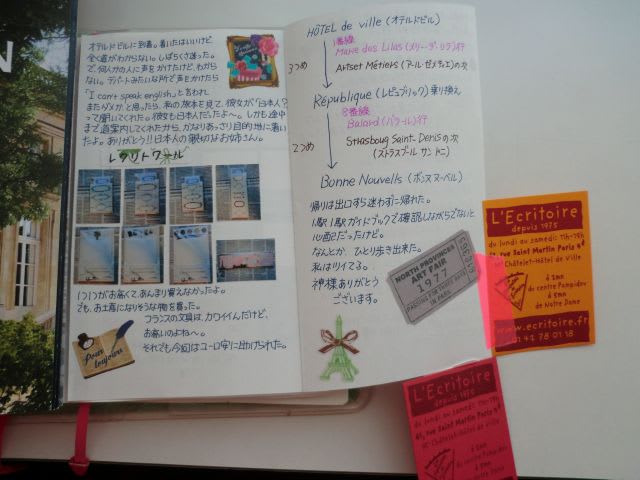 オテルドビルに到着。着いたはいいけど、
全く道がわからない。しばらく迷った。
で、何人かの人に声をかけたけど、わから
ない。デパートみたいな所で声をかけたら
「I can't speak english.」と言われ
またダメか、と思ったら、私の旅本を見て、彼女が「日本人？」
って聞いてくれた。彼女も日本人だったよ〜。しかも途中
まで道案内してくれたから、かなりあっさり目的地に着い
たよ。ありがとう!!日本人の親切なお姉さん。
レクリトワール
1つ1つがお高くて、あんまり買えなかったよ。
でも、お土産になりそうな物を買った。
フランスの文具は、カワイイんだけど、
お高いのよね〜。
それでも今回はユーロ安に助けられた。
Pour toujours
HÔTEL de ville (オテルドビル)
1番線
Marie des Lilas (メリー・デ・リラ) 行
3つめ
Artset Métiers (アール・ゼ・メティエ)の次
République (レピュブリック) 乗り換え
8番線
Balard (バラール) 行
2つめ
Strasboug Saint-Denisの次
(ストラスブール サン ドニ)
Bonne Nouvells (ボンヌヌーベル)
帰りは出口すら迷わずに帰れた。
1駅1駅ガイドブックで確認しながらでないと
心配だったけど。
なんとか、ひとり歩き出来た。
私はツイてる。
神様ありがとう
ございます。
NORTH PROVINCES
ART FAIR
1977
IN PARIS
L'Ecritoire
depuis 1975
du lundi au samedi 11h-19h
61, rue Saint Martin Paris 4e
Mo Châtelet-Hôtel de Ville
à 2mn
de centre Pompidou
à 5mn
de Notre Dame
www.ecritoire.fr
01 42 78 01 18
L'Ecritoire
depuis 1975
du lundi au samedi 11h-19h
61, rue Saint Martin Paris 4e
Mo Châtelet-Hôtel de Ville
à 2mn
de centre Pompidou
à 5mn
de Notre Dame